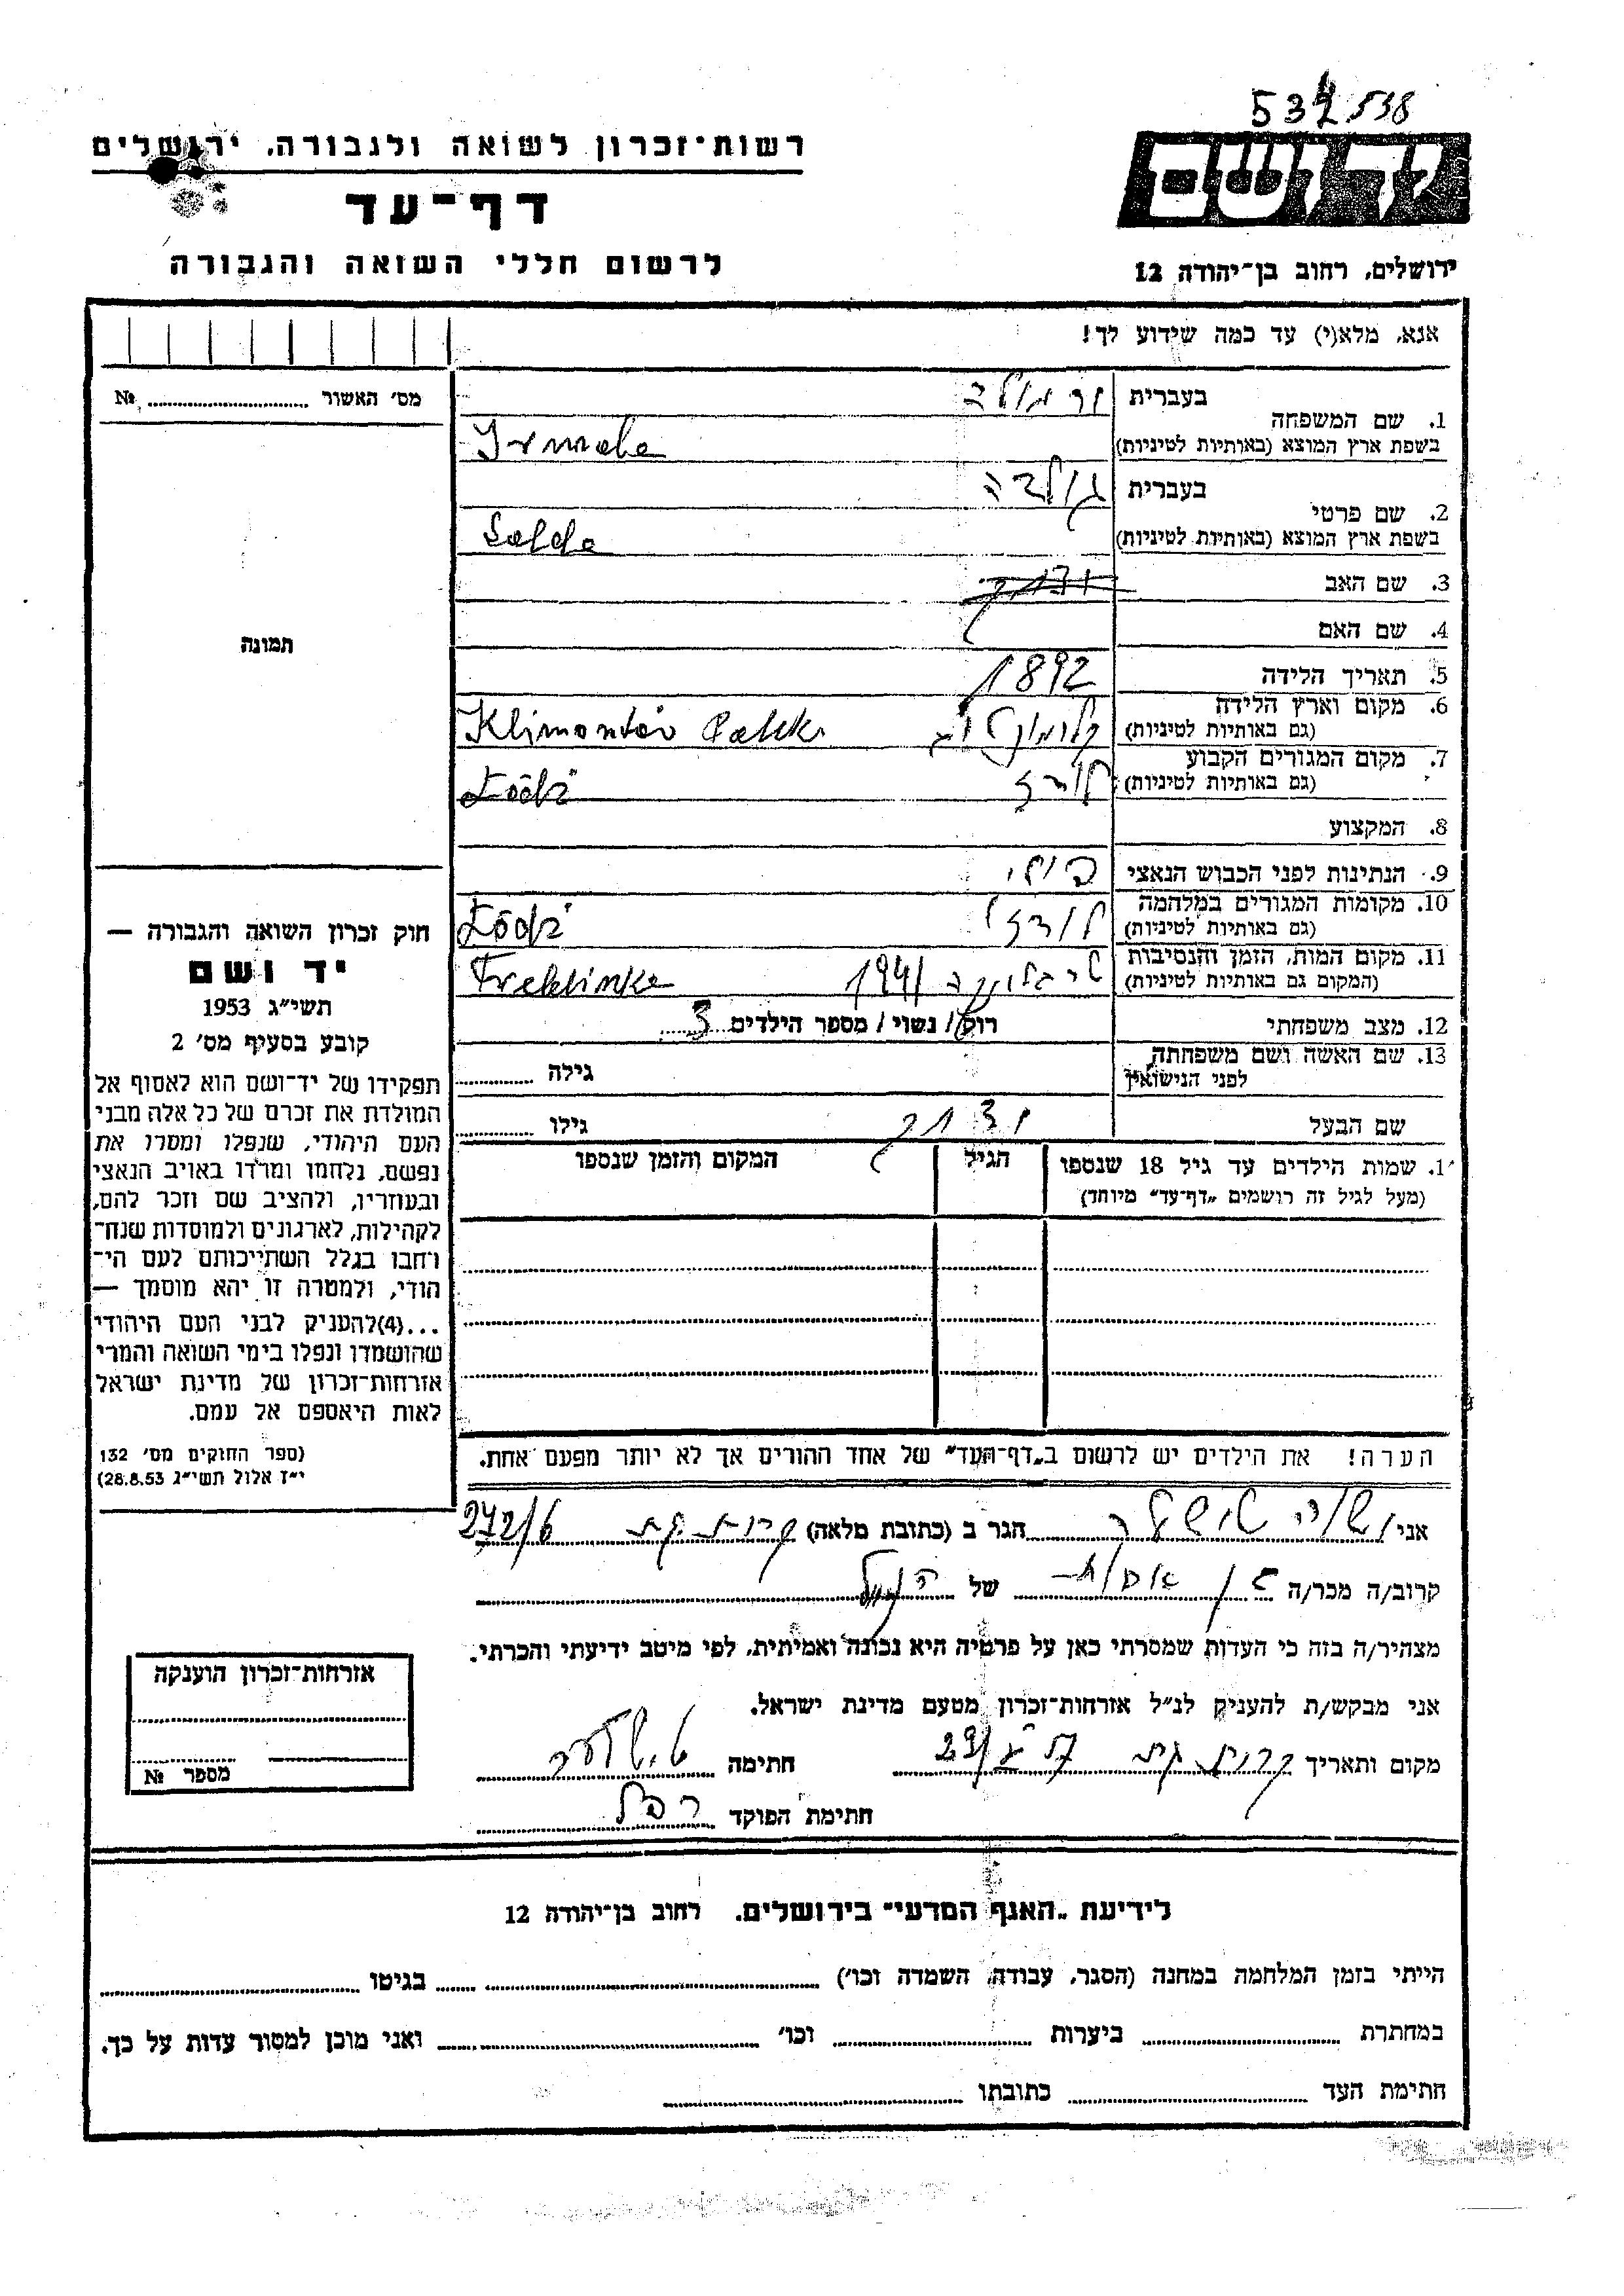 538
רשות־זכרון לשואה ולגבורה, ירושלים
דף־עד
לרשום חללי השואה והגבורה
ידושם
ירושלים, רחוב בן־יהודה 12
אנא, מלא(י) עד כמה שידוע לך!
מס׳ האשור № 
תמונה
1. שם המשפחה
בעברית
בשפת ארץ המוצא (באותיות לטיניות)
2. שם פרטי
בעברית גולדה
בשפת ארץ המוצא (באותיות לטיניות)
3. שם האב
4. שם האם
5. תאריך הלידה 1892
6. מקום וארץ הלידה
(גם באותיות לטיניות) Klimontów
7. מקום המגורים הקבוע
(גם באותיות לטיניות) לודז Łódź
8. המקצוע
9. הנתינות לפני הכבוש הנאצי פולני
10. מקומות המגורים במלחמה
(גם באותיות לטיניות) לודז Łódź
11. מקום המות, הזמן והנסיבות
(המקום גם באותיות לטיניות) טרבלינקה 1941 Treblinka
12. מצב משפחתי רוק/ נשוי/ מספר הילדים 3
13. שם האשה ושם משפחתה
לפני הנישואין גילה
שם הבעל גילו
1. שמות הילדים עד גיל 18 שנספו
(מעל לגיל זה רושמים „דף־עד״ מיוחד)
הגיל
המקום והזמן שנספו
הערה! את הילדים יש לרשום ב„דף־העד״ של אחד ההורים אך לא יותר מפעם אחת.
חוק זכרון השואה והגבורה —
יד ושם
תשי״ג 1953
קובע בסעיף מס׳ 2
תפקידו של יד־ושם הוא לאסוף אל
המולדת את זכרם של כל אלה מבני
העם היהודי, שנפלו ומסרו את
נפשם, נלחמו ומרדו באויב הנאצי
ובעוזריו, ולהציב שם וזכר להם,
לקהילות, לארגונים ולמוסדות שנח־
רחבו בגלל השתייכותם לעם הי־
הודי, ולמטרה זו יהא מוסמך —
...(4)להעניק לבני העם היהודי
שהושמדו ונפלו בימי השואה והמרי
אזרחות־זכרון של מדינת ישראל
לאות היאספם אל עמם.
(ספר החוקים מס׳ 132
י״ז אלול תשי״ג 28.8.53)
אני הגר ב (כתובת מלאה) קרית גת 272/6
קרוב/ה מכר/ה של
מצהיר/ה בזה כי העדות שמסרתי כאן על פרטיה היא נכונה ואמיתית, לפי מיטב ידיעתי והכרתי.
אני מבקש/ת להעניק לנ״ל אזרחות־זכרון מטעם מדינת ישראל.
מקום ותאריך קרית גת חתימה
חתימת הפוקד
אזרחות־זכרון הוענקה
מספר №
לידיעת „האגף המדעי״ בירושלים, רחוב בן־יהודה 12
הייתי בזמן המלחמה במחנה (הסגר, עבודה, השמדה וכו׳) בגיטו
במחתרת ביערות וכו׳ ואני מוכן למסור עדות על כך.
חתימת העד כתובתו